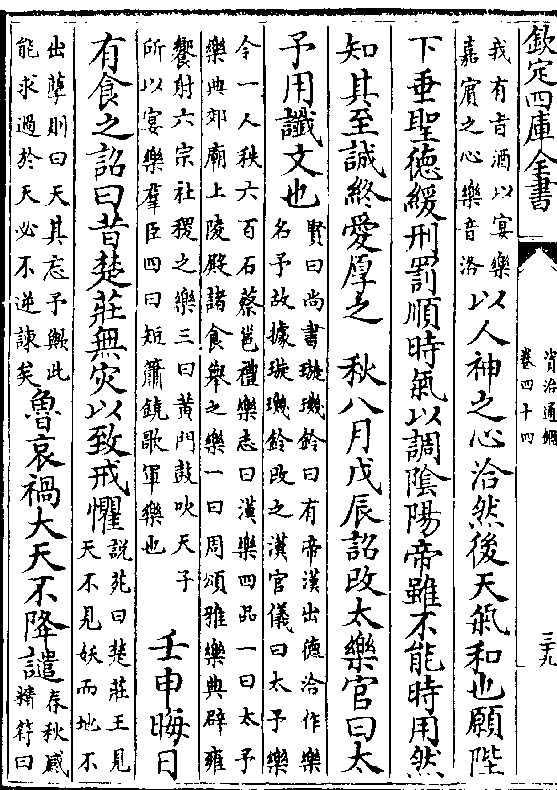 欽定四庫全書
資治通鑑
卷四十四
三十九
我有旨酒以宴樂
嘉賓之心樂音洛
以人神之心洽然後天氣和也願陛
下垂聖德緩刑罰順時氣以調陰陽帝雖不能時用然
知其至誠終愛厚之　秋八月戊辰詔改太樂官曰太
予用讖文也
賢曰尚書璇璣鈴曰有帝漢出德洽作樂
名予故據璇璣鈴改之漢官儀曰太予樂
令一人秩六百石蔡邕禮樂志曰漢樂四品一曰太予
樂典郊廟上陵殿諸食舉之樂一曰周頌雅樂典辟雍
饗射六宗社稷之樂三曰黄門鼓吹天子
所以宴樂羣臣四曰短簫鐃歌軍樂也
壬申晦日
有食之詔曰昔楚莊無災以致戒懼
說苑曰楚莊王見
天不見妖而地不
出孽則曰天其忘予歟此
能求過於天必不逆諫矣
魯哀禍大天不降譴
春秋感
精符曰